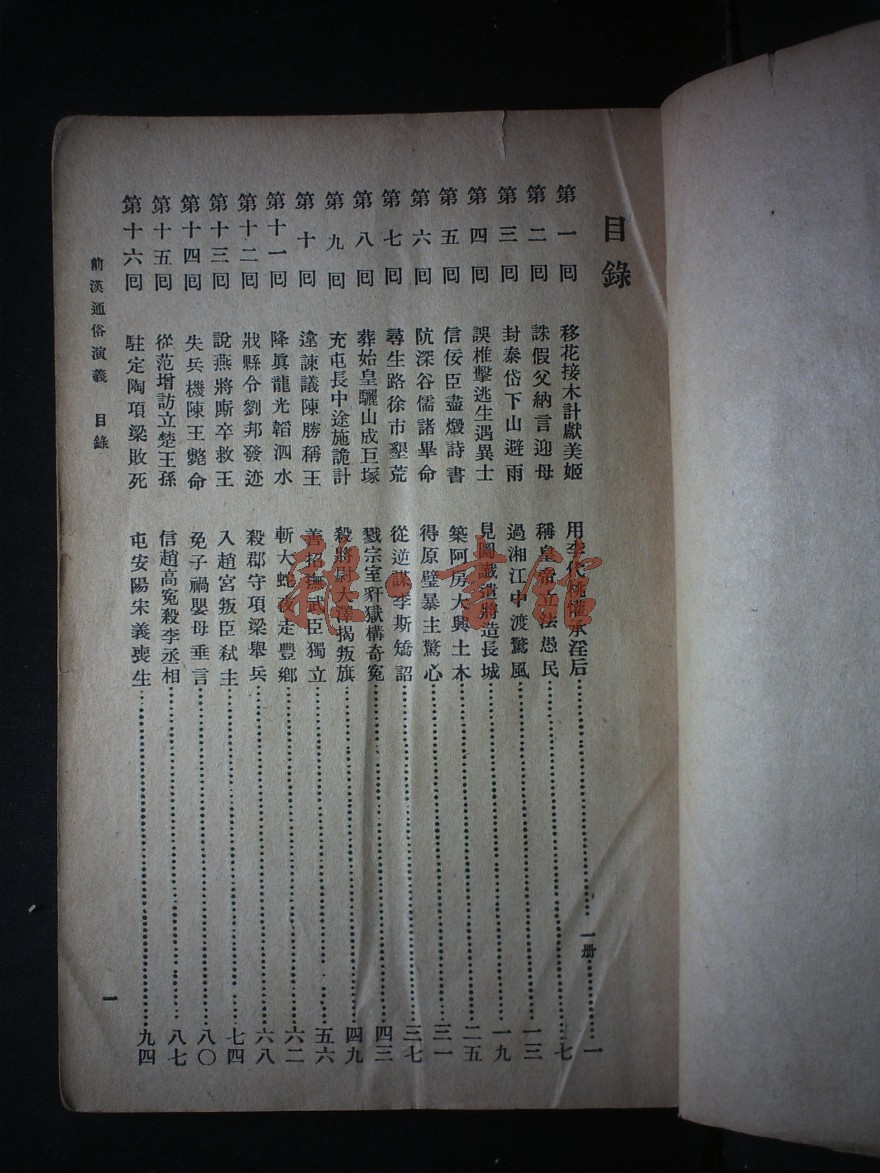 目錄
第一回 移花接木計獻美姬 用李代桃僭承淫后…………一册…………一
第二回 誅假父納言迎母 稱皇帝立法愚民…………七
第三回 封泰岱下山避雨 過湘江中渡驚風…………一三
第四回 誤椎擊逃生遇異士 見圖讖遣將造長城…………一九
第五回 信佞臣盡燬詩書 築阿房大興土木…………二五
第六回 阬深谷儒諸畢命 得原璧暴主驚心…………三一
第七回 尋生路徐市墾荒 從逆謀李斯矯詔…………三七
第八回 葬始皇驪山成巨塚 戮宗室豻獄構奇冤…………四三
第九回 充屯長中途施詭計 殺將尉大澤揭叛旗…………四九
第十回 違諫議陳勝稱王 善招撫武臣獨立…………五六
第十一回 降眞龍光韜泗水 斬大蛇夜走豐鄉…………六二
第十二回 戕縣令劉邦發迹 殺郡守項梁舉兵…………六八
第十三回 說燕將廝卒救王 入趙宮叛臣弒主…………七四
第十四回 失兵機陳王斃命 免子禍嬰母垂言…………八〇
第十五回 從范增訪立楚王孫 信趙高冤殺李丞相…………八七
第十六回 駐定陶項梁敗死 屯安陽宋義喪生…………九四
前漢通俗演義 目錄
一
雜·書館